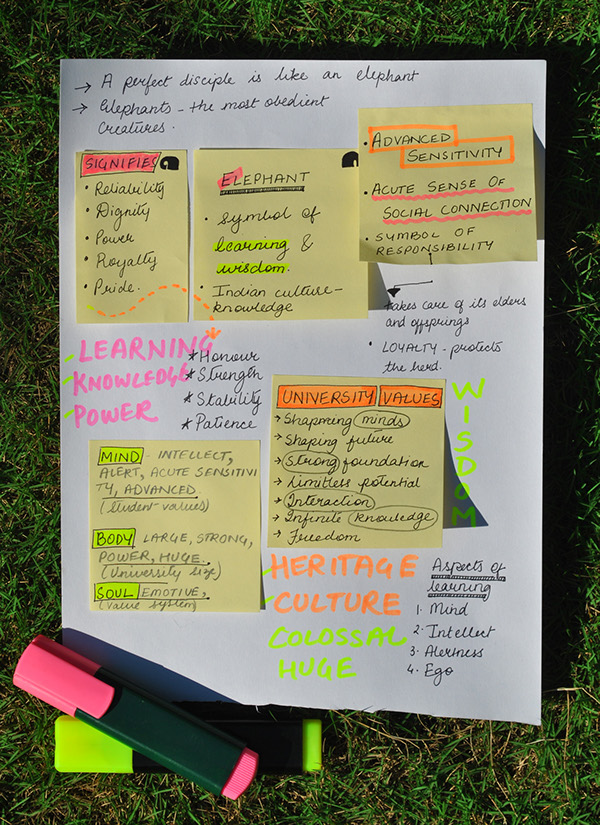 → A perfect disciple is like an elephant
→ Elephants - the most obedient
creatures.
SIGNIFIES
• Reliability
• Dignity
• Power
• Royalty
• Pride.
ELEPHANT
• Symbol of
learning &
wisdom.
• Indian culture-
knowledge
• ADVANCED
SENSITIVITY
• ACUTE SENSE OF
SOCIAL CONNECTION
• SYMBOL OF
RESPONSIBILITY
takes care of its elders
and offsprings
• LOYALTY - protects
the herd.
LEARNING
KNOWLEDGE
POWER
* Honour
* Strength
* Stability
* Patience
UNIVERSITY VALUES
→ Shapening minds
→ Shaping future
→ Strong foundation
→ Limitless potential
→ Interaction
→ Infinite knowledge
→ Freedom
WISDOM
MIND - INTELLECT,
ALERT, ACUTE SENSITIVI
TY, ADVANCED.
(student values)
BODY LARGE, STRONG,
POWER, HUGE.
(University size)
SOUL EMOTIVE,
(value system)
HERITAGE
CULTURE
COLOSSAL
HUGE
Aspects of
learning
1. Mind
2. Intellect
3. Alertness
4. Ego